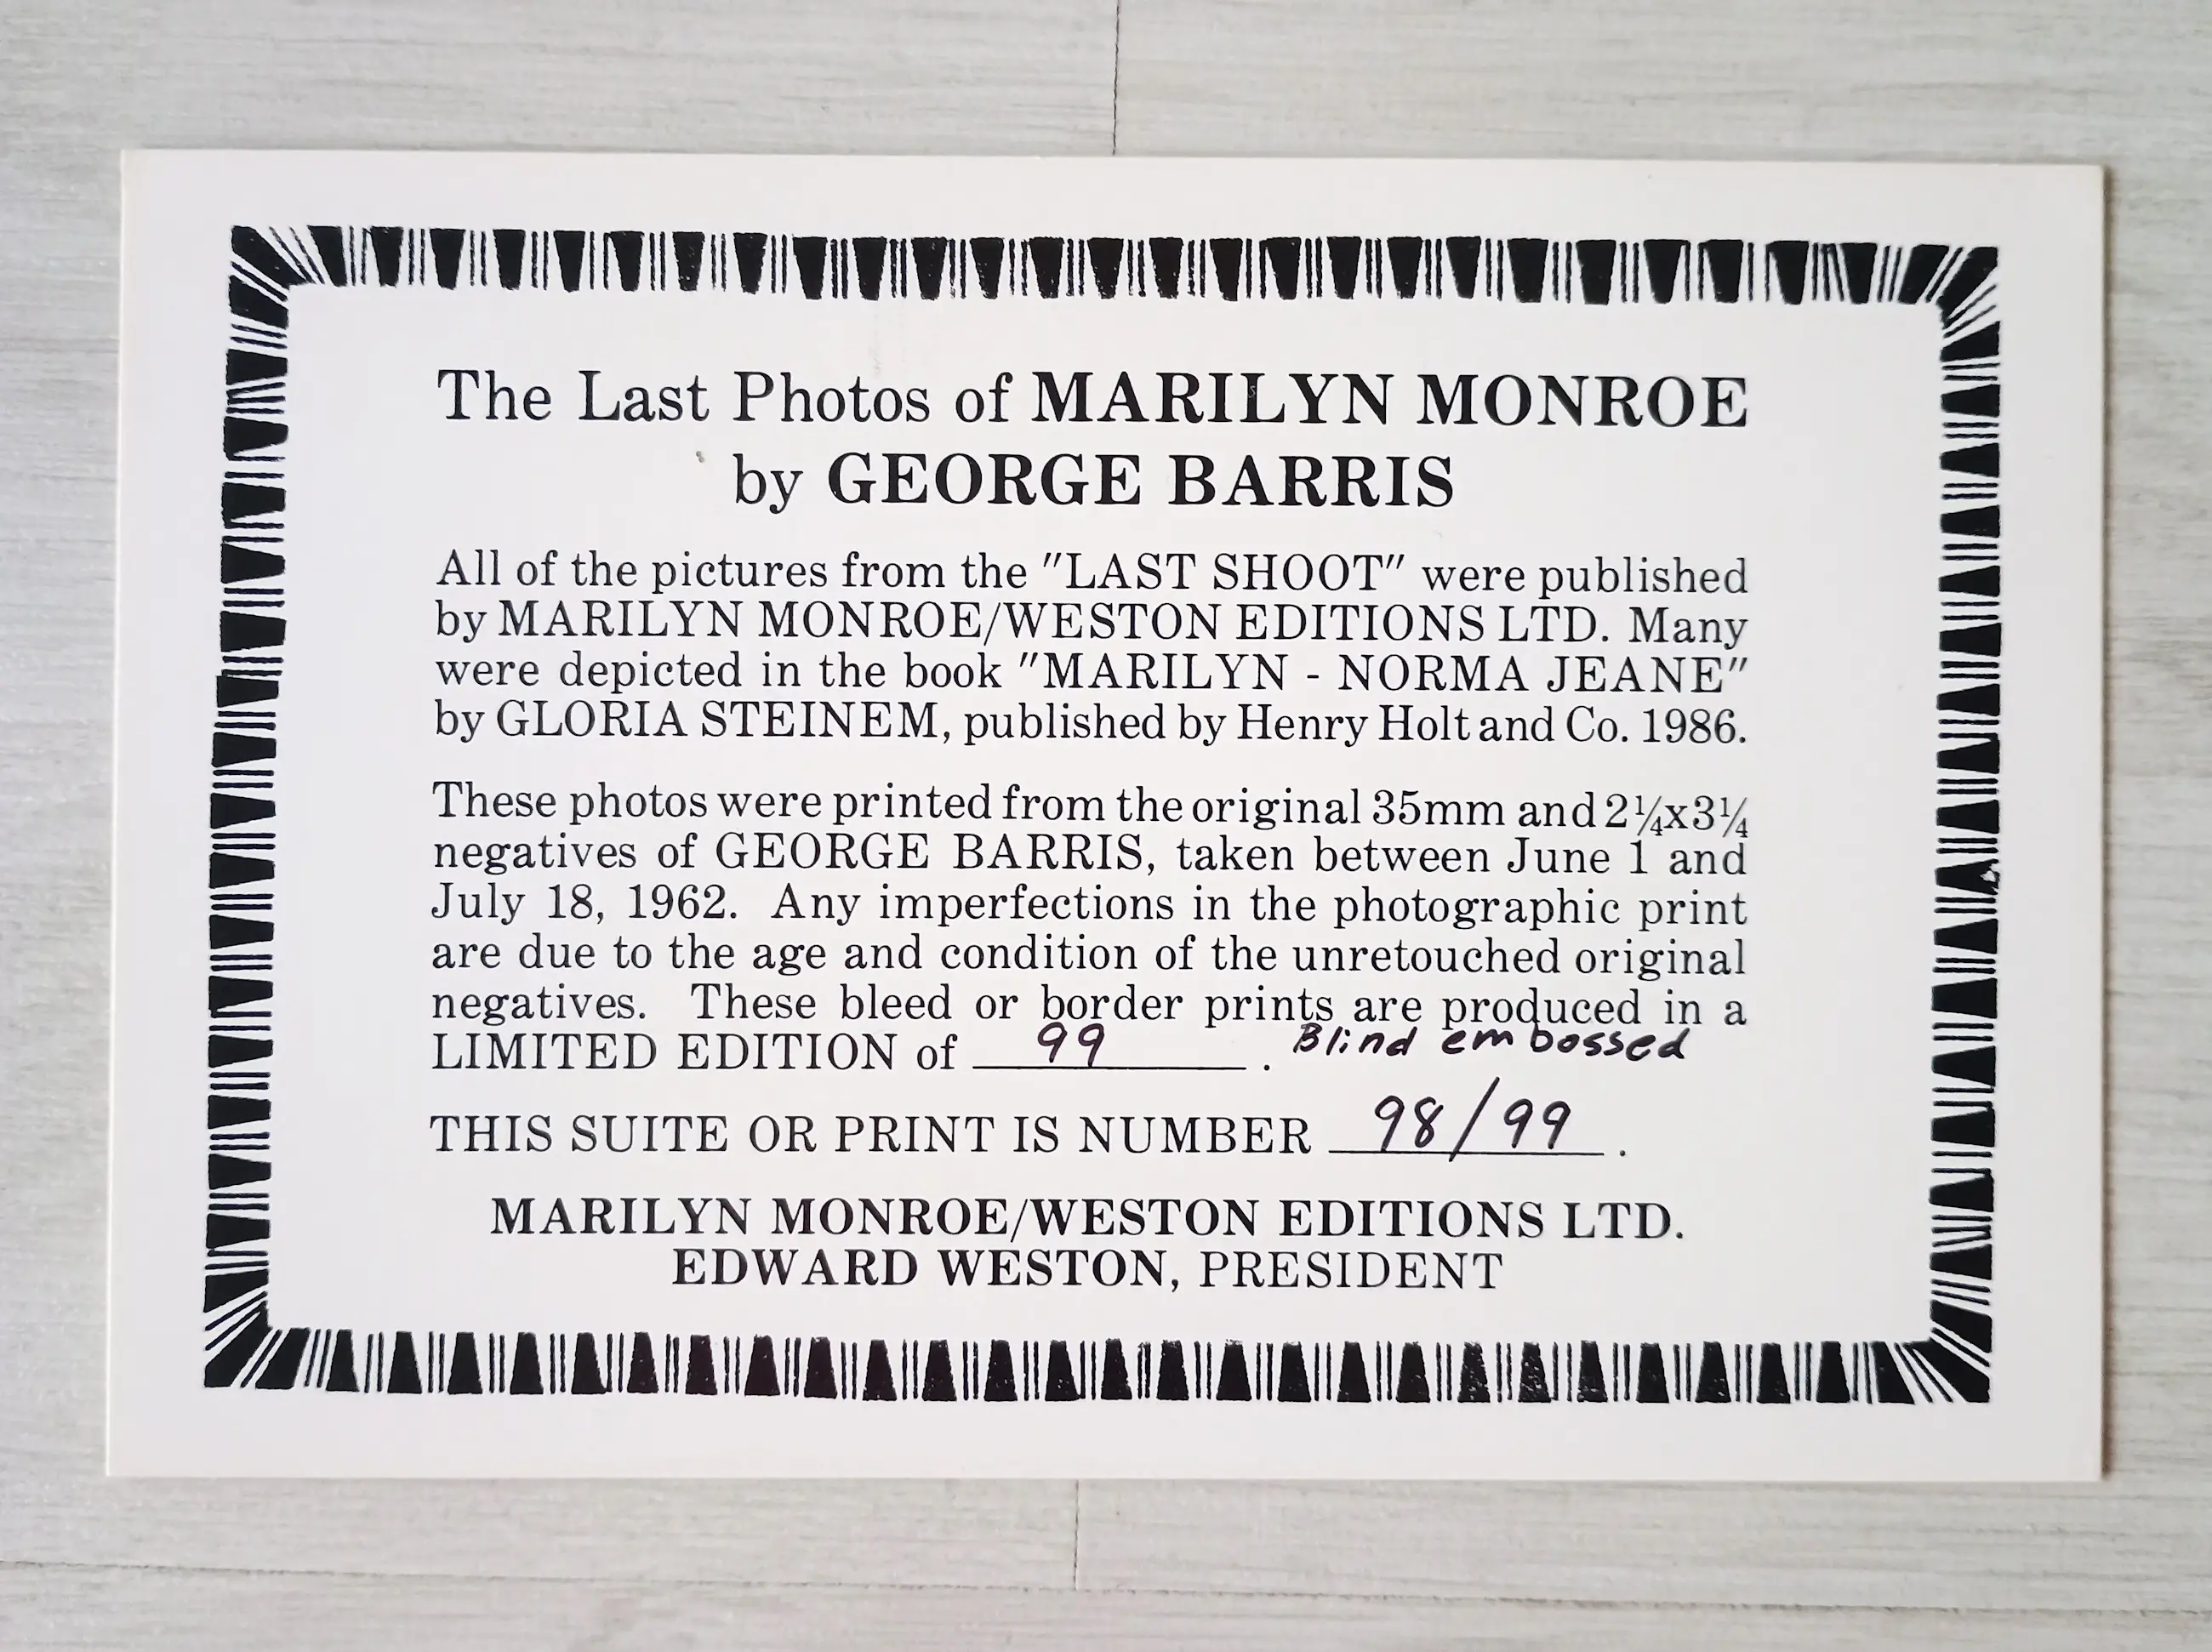 The Last Photos of MARILYN MONROE
by GEORGE BARRIS
All of the pictures from the "LAST SHOOT" were published
by MARILYN MONROE/WESTON EDITIONS LTD. Many
were depicted in the book "MARILYN - NORMA JEANE"
by GLORIA STEINEM, published by Henry Holt and Co. 1986.
These photos were printed from the original 35mm and 2¼x3¼
negatives of GEORGE BARRIS, taken between June 1 and
July 18, 1962. Any imperfections in the photographic print
are due to the age and condition of the unretouched original
negatives. These bleed or border prints are produced in a
LIMITED EDITION of 99. Blind embossed
THIS SUITE OR PRINT IS NUMBER 98/99.
MARILYN MONROE/WESTON EDITIONS LTD.
EDWARD WESTON, PRESIDENT